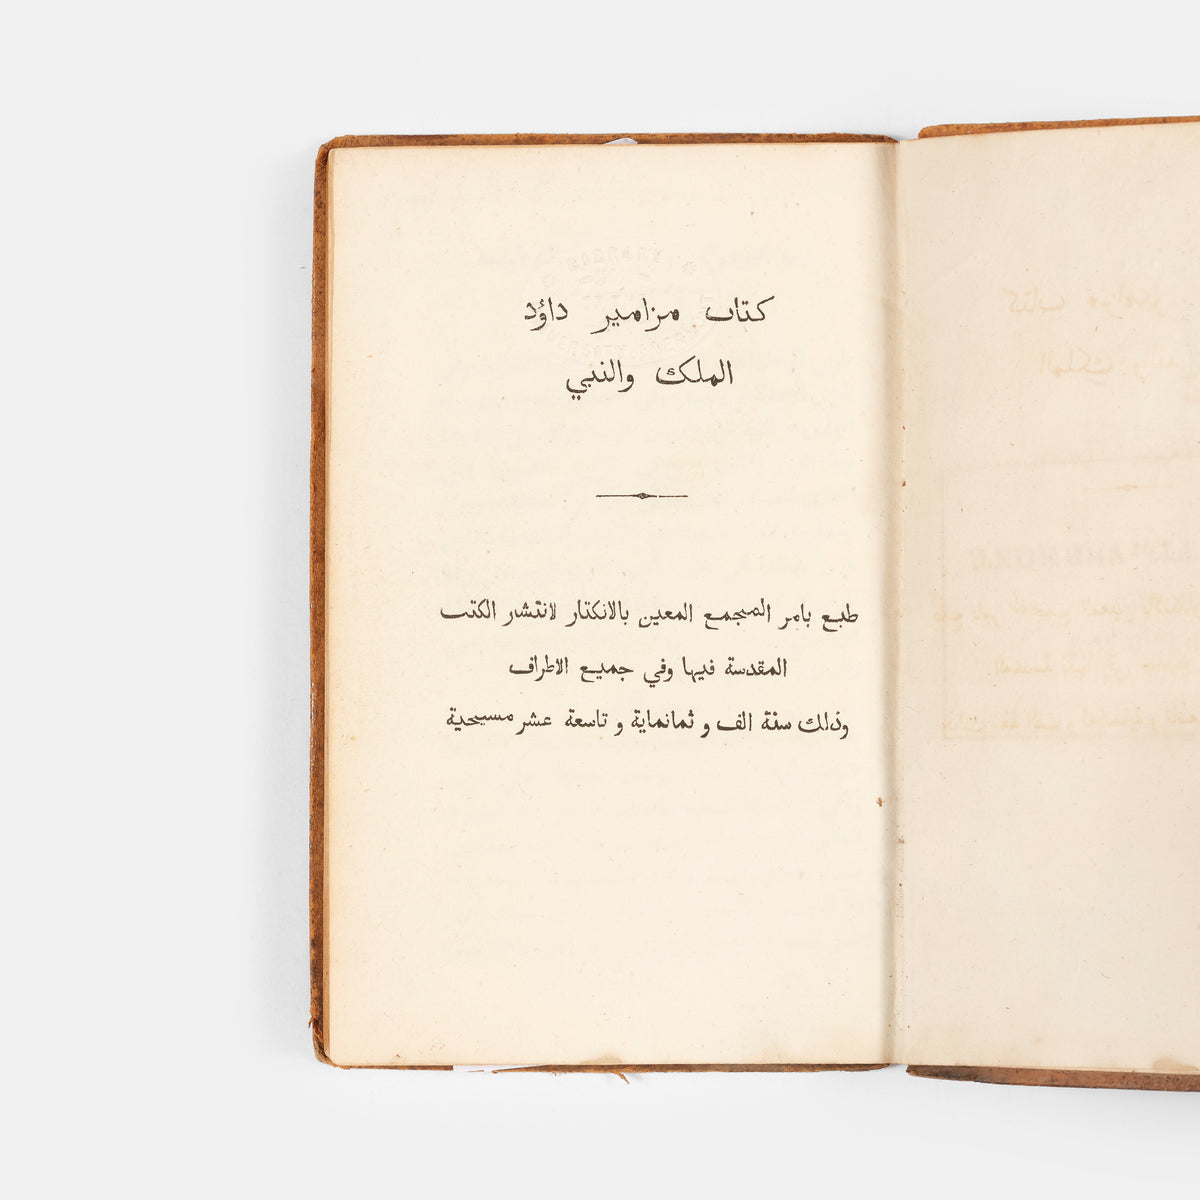 كتاب مزامير داؤد
الملك والنبي
طبع بامر المجمع المعين بالانكتار لانتشار الكتب
المقدسة فيها وفي جميع الاطراف
وذلك سنة الف و ثمانماية و تاسعة عشر مسيحية